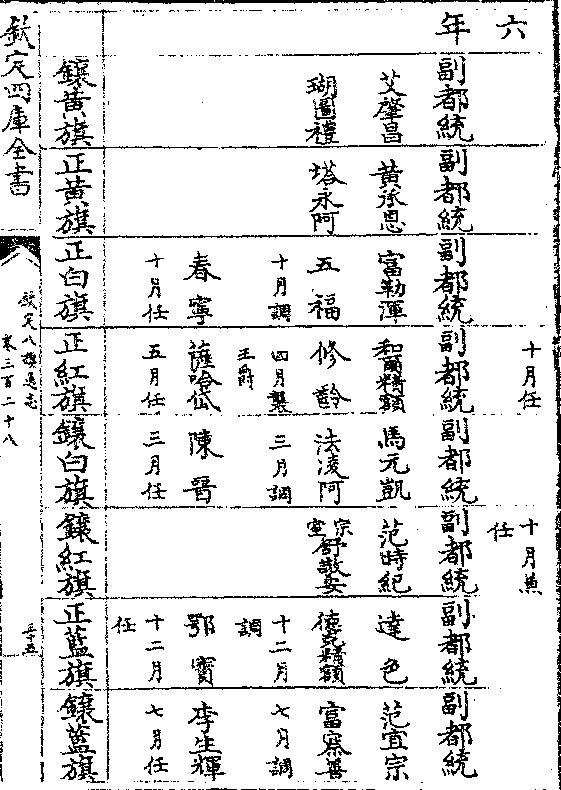 六
十月任
十月兼任
年
副都統
副都統
副都統
副都統
副都統
副都統
副都統
副都統
艾肇昌
黃承恩
富勒渾
和爾精額
馬元凱
范時紀
達色
范宜宗
瑚圖禮
塔永阿
五福
修齡
法凌阿
宗室舒敬安
德克精額
富察善
十月調
四月襲王爵
三月調
十二月調
七月調
春寧
薩哈岱
陳晉
鄂寶
李生輝
十月任
五月任
三月任
十二月任
七月任
鑲黃旗
正黃旗
正白旗
正紅旗
鑲白旗
鑲紅旗
正藍旗
鑲藍旗
欽定四庫全書
欽定八旗通志
卷三百二十八
三十五